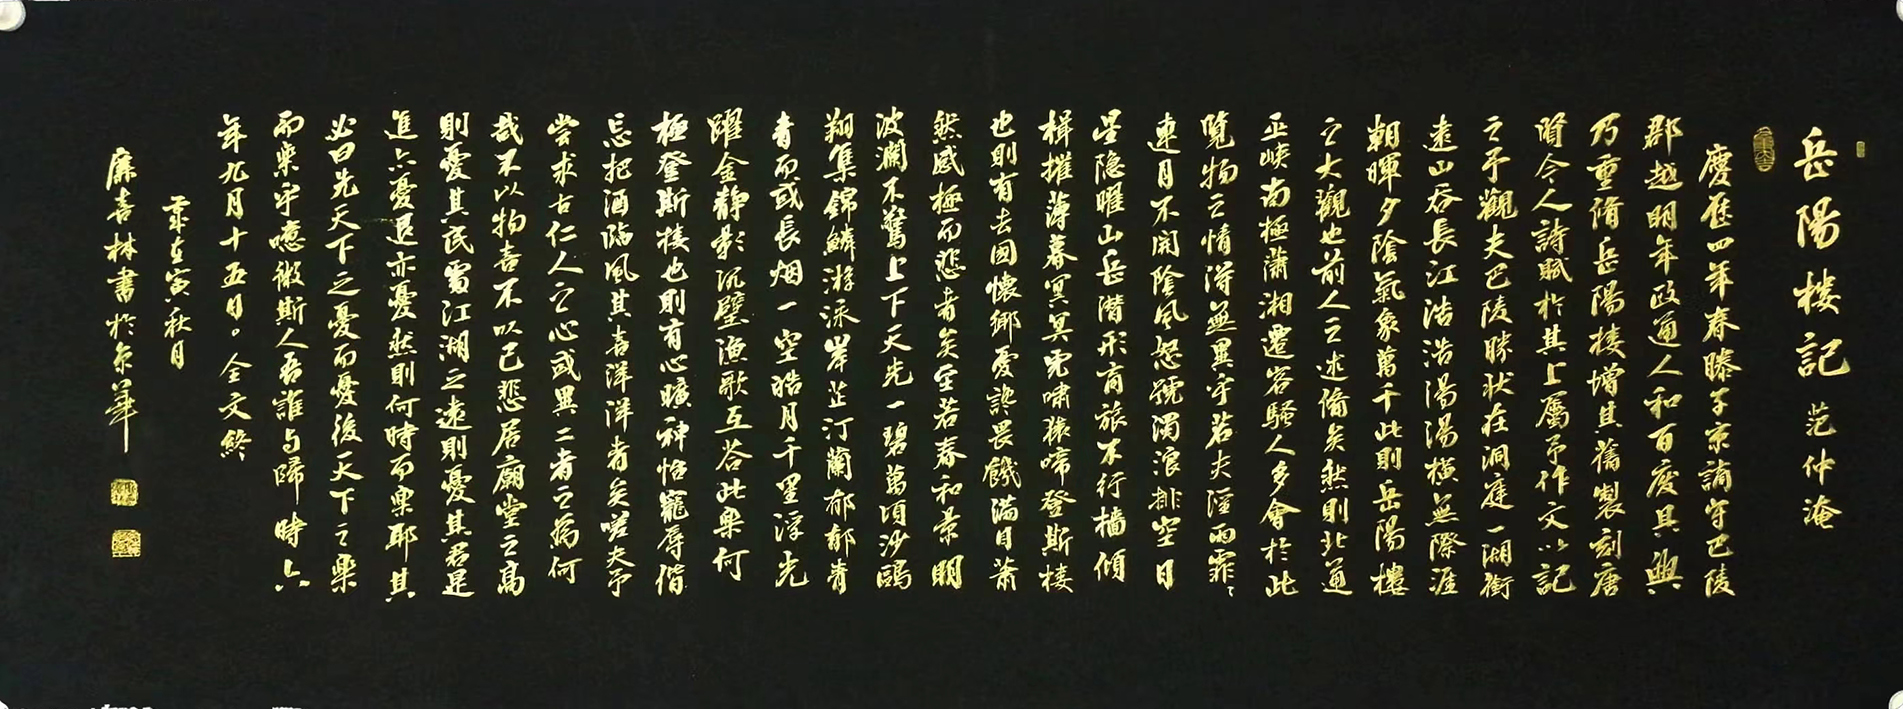 岳陽楼記 范仲淹
慶歷四年春滕子京謫守巴陵
郡越明年政通人和百廢具興
乃重脩岳陽楼增其舊製刻唐
賢今人詩賦於其上屬予作文以記
之予觀夫巴陵勝狀在洞庭一湖銜
遠山吞長江浩浩湯湯橫無際涯
朝暉夕陰氣象萬千此則岳陽樓
之大觀也前人之述備矣然則北通
巫峽南極瀟湘遷客騷人多會於此
覧物之情得無異乎若夫霪雨霏〻
連月不開陰風怒號濁浪排空日
星隐曜山岳潛形商旅不行檣傾
楫摧薄暮冥冥虎嘯猿啼登斯楼
也則有去國懷鄉憂讒畏譏滿目蕭
然感極而悲者矣至若春和景明
波瀾不驚上下天光一碧萬頃沙鷗
翔集錦鱗游泳岸芷汀蘭郁郁青
青而或長烟一空皓月千里浮光
躍金静影沉璧漁歌互荅此樂何
極登斯楼也則有心曠神怡寵辱偕
忘把酒臨風其喜洋洋者矣嗟夫予
尝求古仁人之心或異二者之為何
哉不以物喜不以己悲居廟堂之高
則憂其民處江湖之遠則憂其君是
進六憂退亦憂然則何時而樂耶其
必曰先天下之憂而憂後天下之樂
而樂乎噫微斯人吾誰与歸 時六
年九月十五日。全文終
寅秋月
廉喜林書於京華